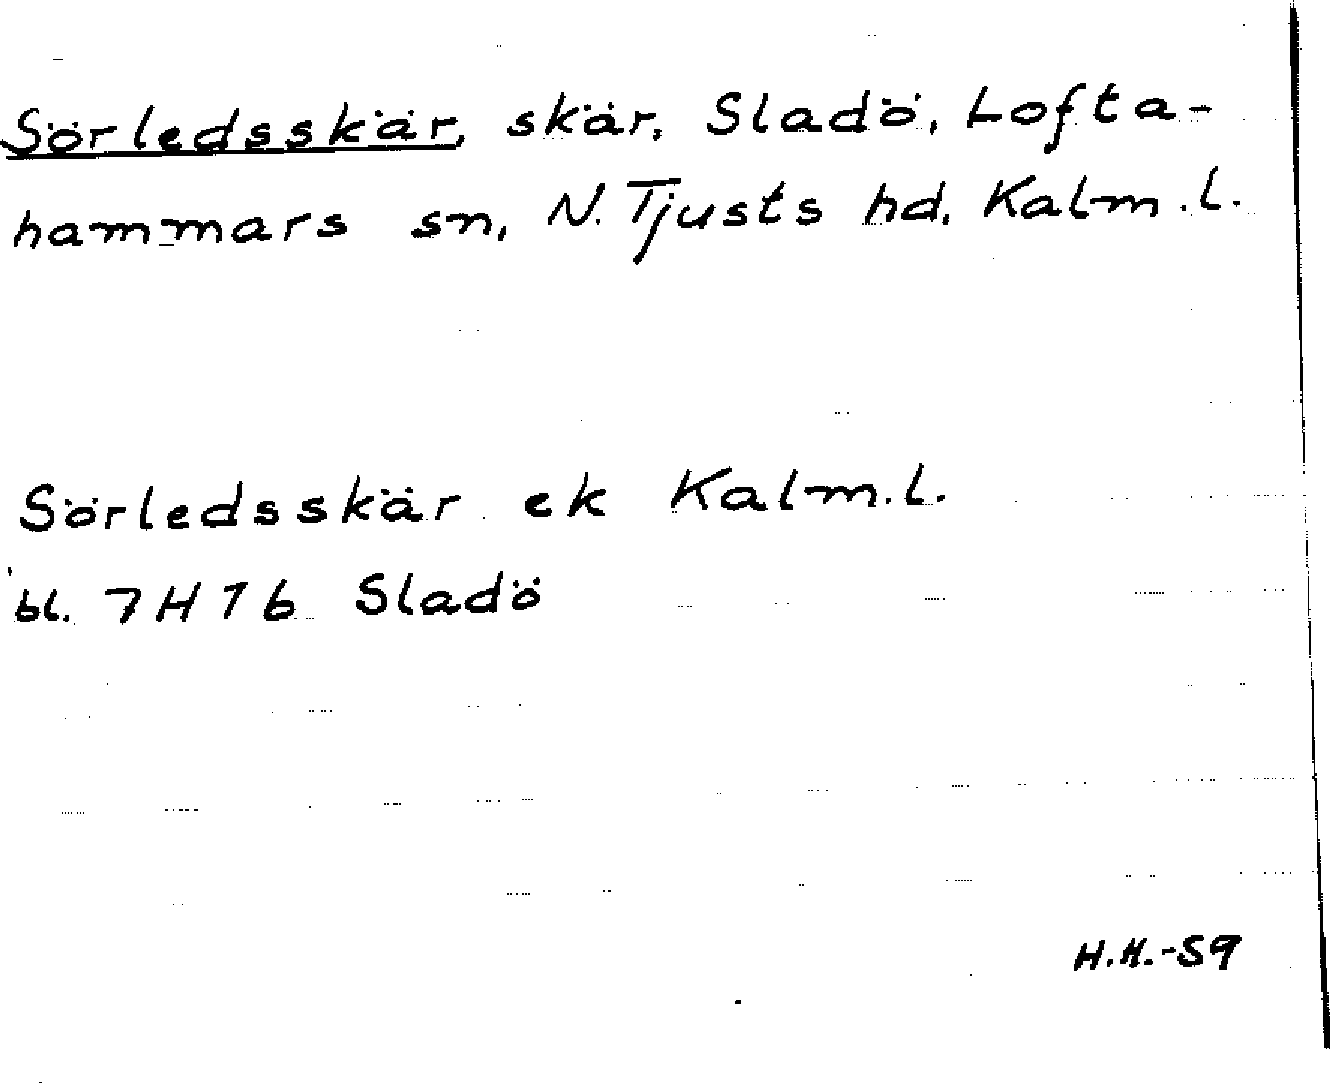 Sörledsskär, skär, Sladö, Lofta-
hammars sn, N. Tjusts hd, Kalm.l.
Sörledsskär ek Kalm.l.
bl. 7H7b Sladö
H.H.-59